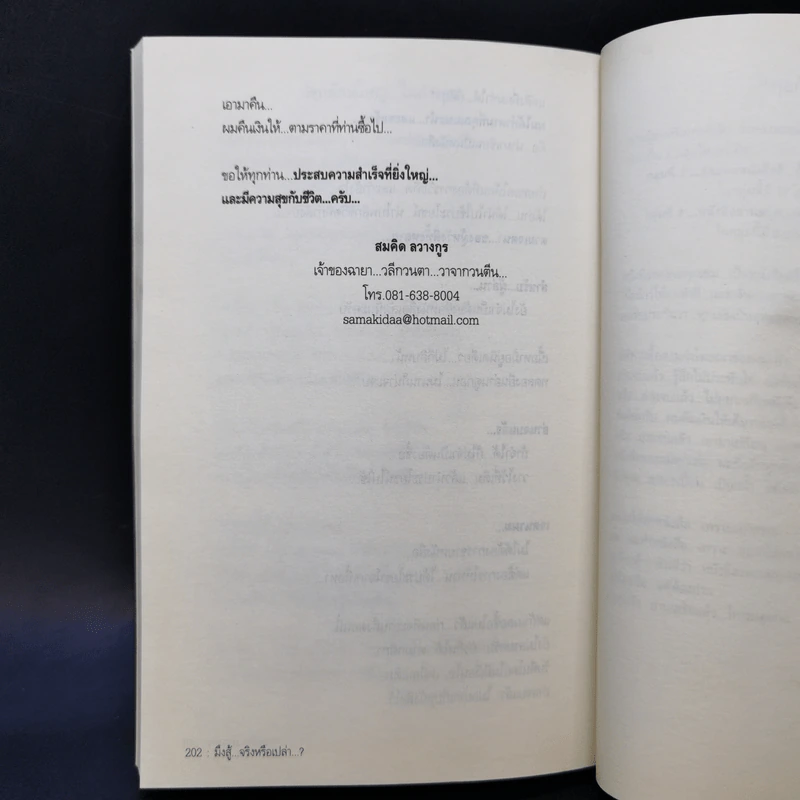 เอามาคืน...
ผมคืนเงินให้...ตามราคาที่ท่านซื้อไป...
ขอให้ทุกท่าน...ประสบความสำเร็จที่ยิ่งใหญ่...
และมีความสุขกับชีวิต...ครับ...
สมคิด ลวางกูร
เจ้าของฉายา...วลีกวนตา...วาจากวนตีน...
โทร.081-638-8004
samakidaa@hotmail.com
202 : มึงสู้...จริงหรือเปล่า...?